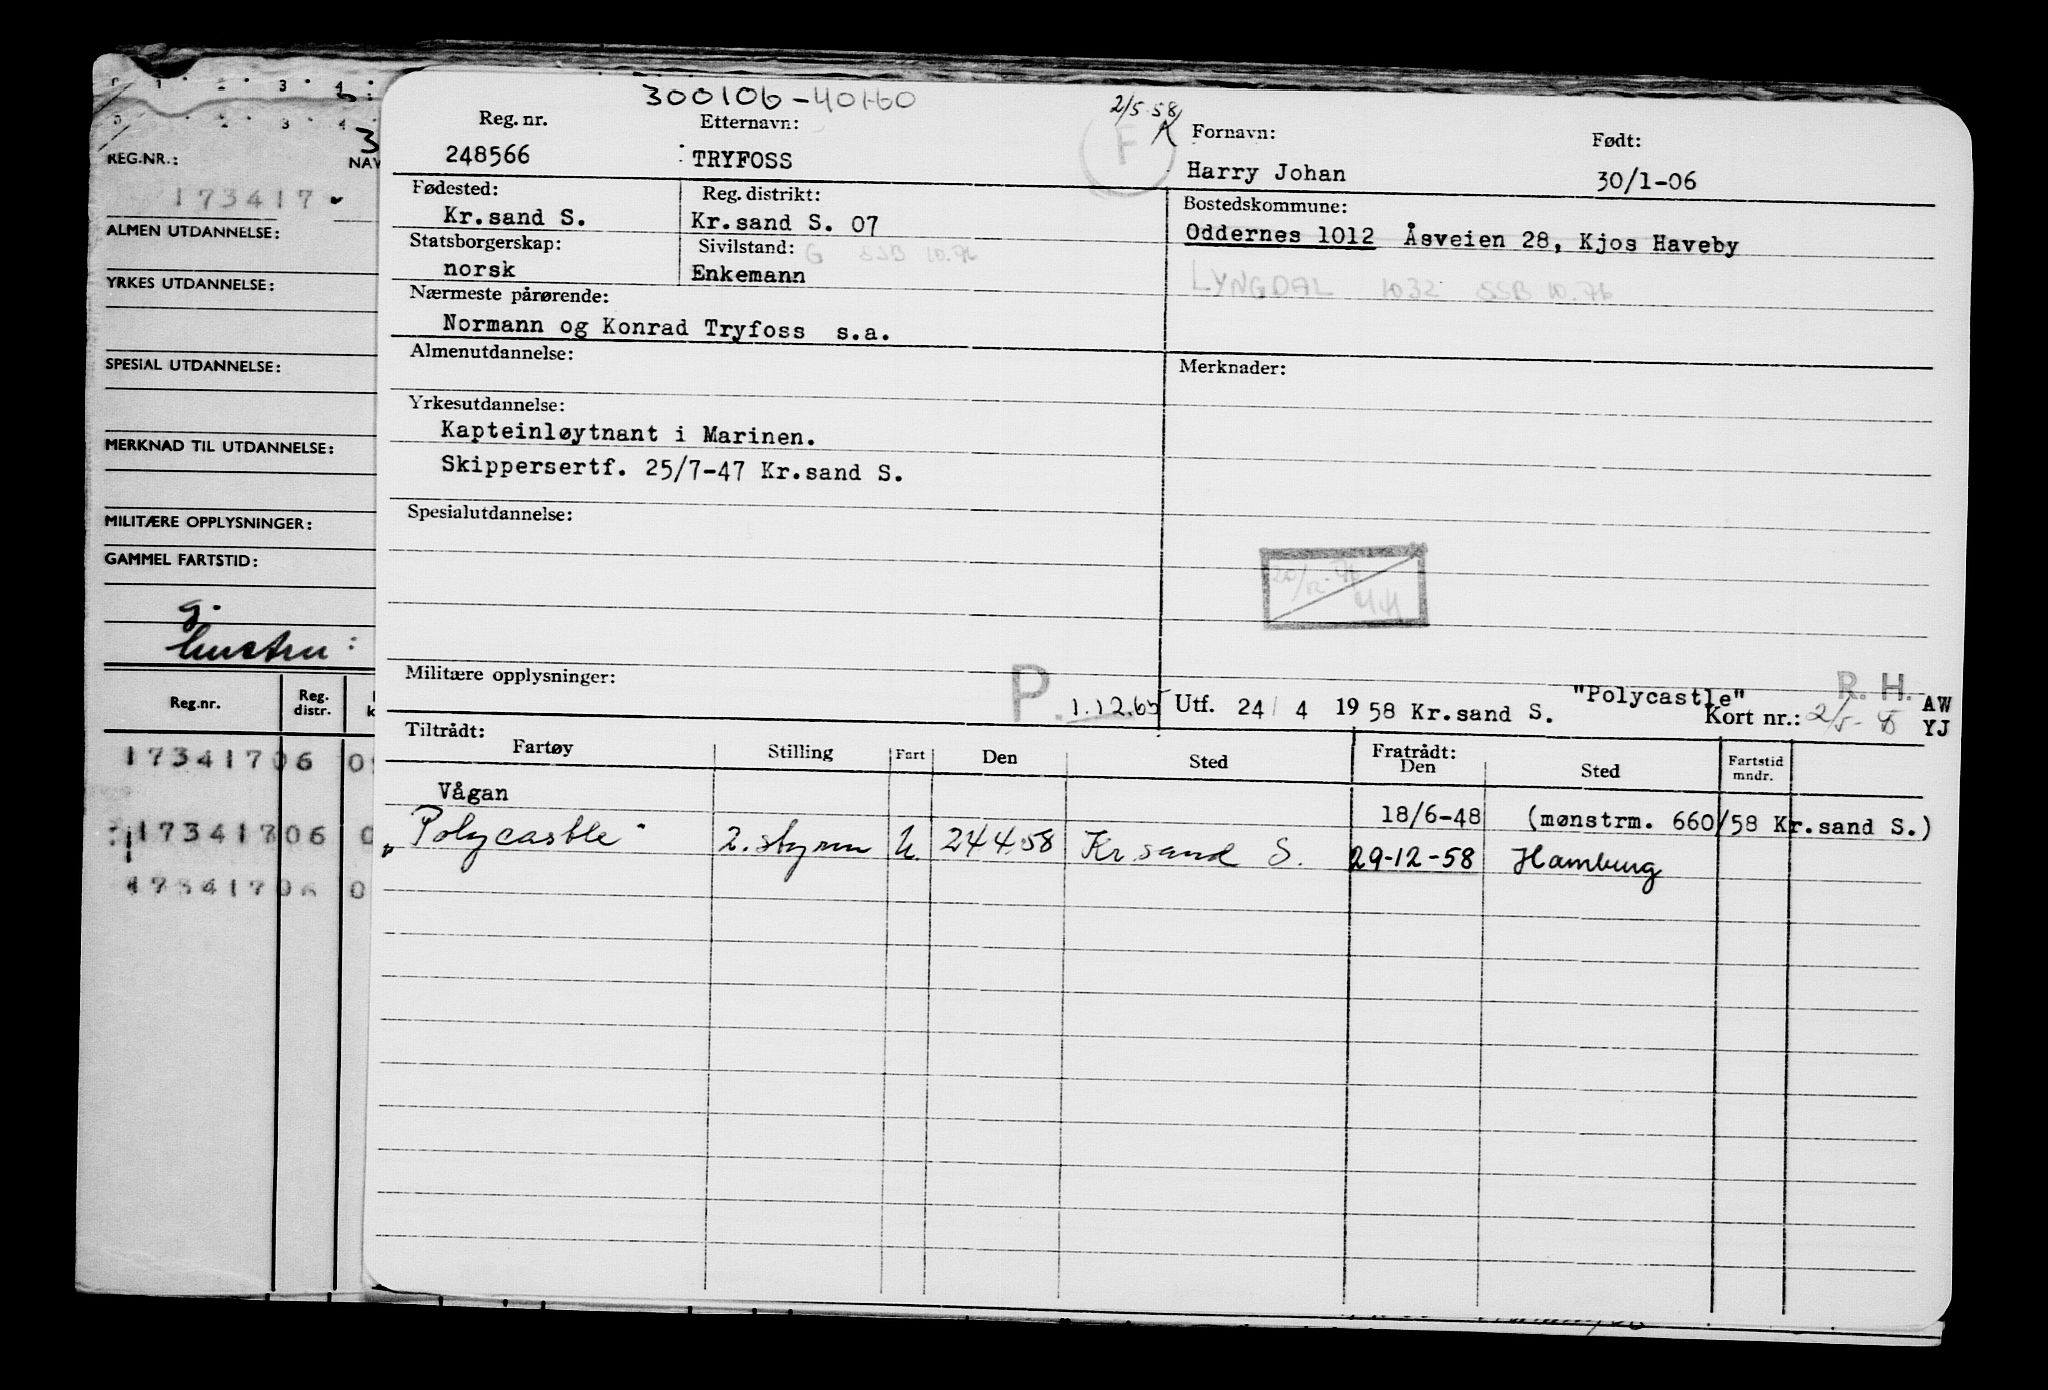 300106-40160
2/5-58
Reg. nr. Etternavn: Fornavn: Født:
248566 TRYFOSS F Harry Johan 30/1-06
Fødested: Reg. distrikt: Bostedskommune:
Kr.sand S. Kr.sand S. 07 Oddernes 1012 Åsveien 28, Kjos Haveby
Statsborgerskap: Sivilstand: G SSB 10.76
norsk Enkemann LYNGDAL 1032 SSB 10.76
Nærmeste pårørende:
Normann og Konrad Tryfoss s.a.
Almenutdannelse: Merknader:
Yrkesutdannelse:
Kapteinløytnant i Marinen.
Skippersertf. 25/7-47 Kr.sand S.
Spesialutdannelse:
Militære opplysninger: P. 1.12.65 Utf. 24/4 1958 Kr.sand S. "Polycastle" R. H. AW
Kort nr.: 2/5- YJ
Tiltrådt: Fratrådt:
Fartøy Stilling Fart Den Sted Den Sted Fartstid mndr.
Vågan 18/6-48 (mønstrm. 660/58 Kr.sand S.)
"Polycastle" 2. styrm U. 24.4.58 Kr.sand S. 29-12-58 Hamburg
1 2 3 4
2 3 4
3
REG.NR.: NAV
173417
ALMEN UTDANNELSE:
YRKES UTDANNELSE:
SPESIAL UTDANNELSE:
MERKNAD TIL UTDANNELSE:
MILITÆRE OPPLYSNINGER:
GAMMEL FARTSTID:
g.
Reg.nr. Reg. distr. k
17341706 0
17341706 0
17341706 0